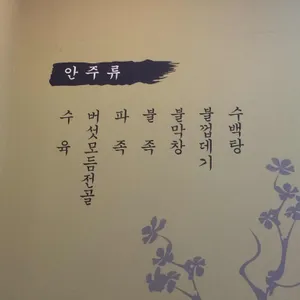 안주류
수육
버섯모듬전골
파족
불족
불막창
불껍데기
수백탕